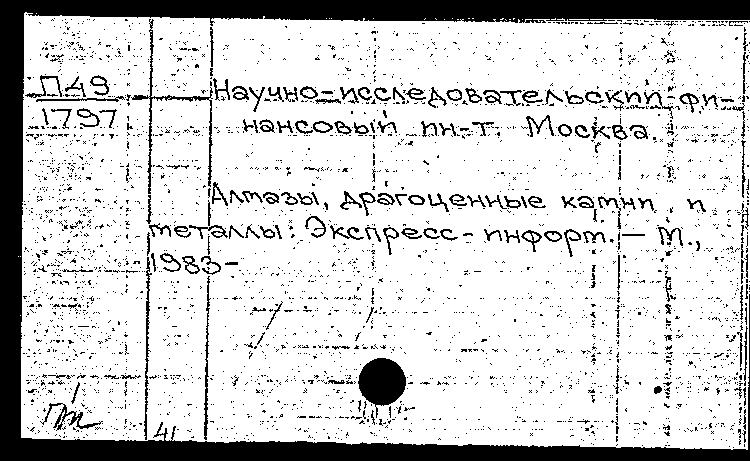 П49
1797
Научно-исследовательский фи-
нансовый ин-т. Москва.
Алмазы, драгоценные камни и
металлы: Экспресс-информ. — М.,
1983-
41